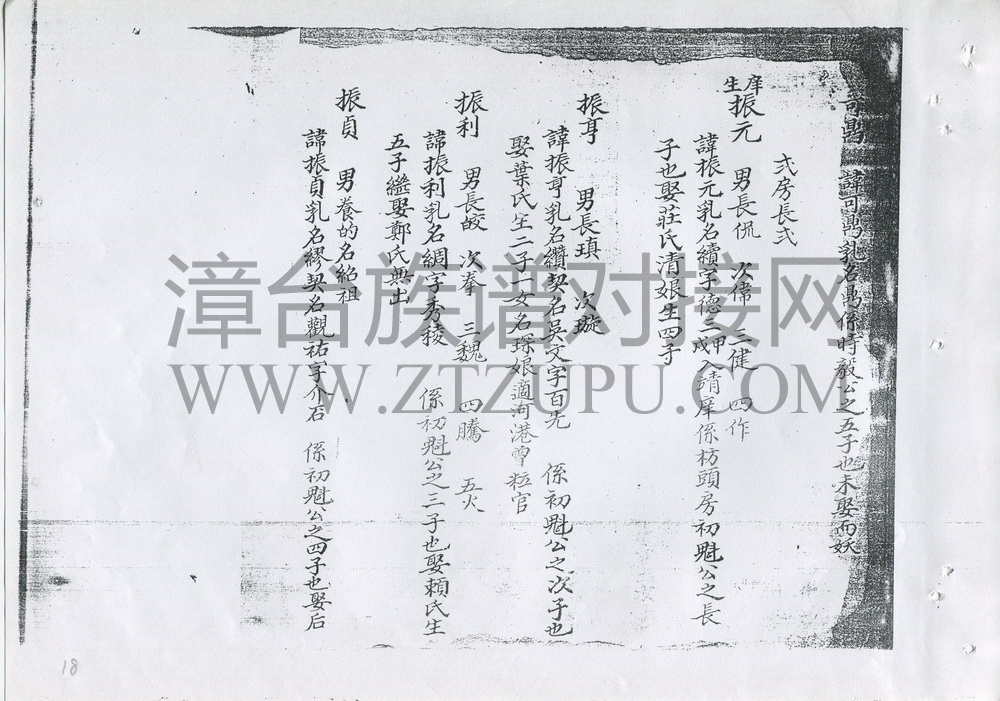 可鳥 諱可鳥乳名鳥係時毅公之五子也未娶而妖
弍房長弍
庠生振元 男長侃 次偉 三健 四作
諱振元乳名續字德三甲戌入靖庠係枋頭房初魁公之長
子也娶莊氏清娘生四子
振亨 男長瑱 次璇
諱振亨乳名纘契名吳文字百先 係初魁公之次子也
娶葉氏生二子一女名琛娘適河港 粒官
振利 男長皎 次拳 三魏 四騰 五火
諱振利乳名綢字秀稜 係初魁公之三子也娶賴氏生
五子繼娶鄭氏無出
振貞 男養的名紹祖
諱振貞乳名繆契名觀祐字介石 係初魁公之四子也娶后
18
漳台族谱对接网
WWW.ZTZUPU.COM